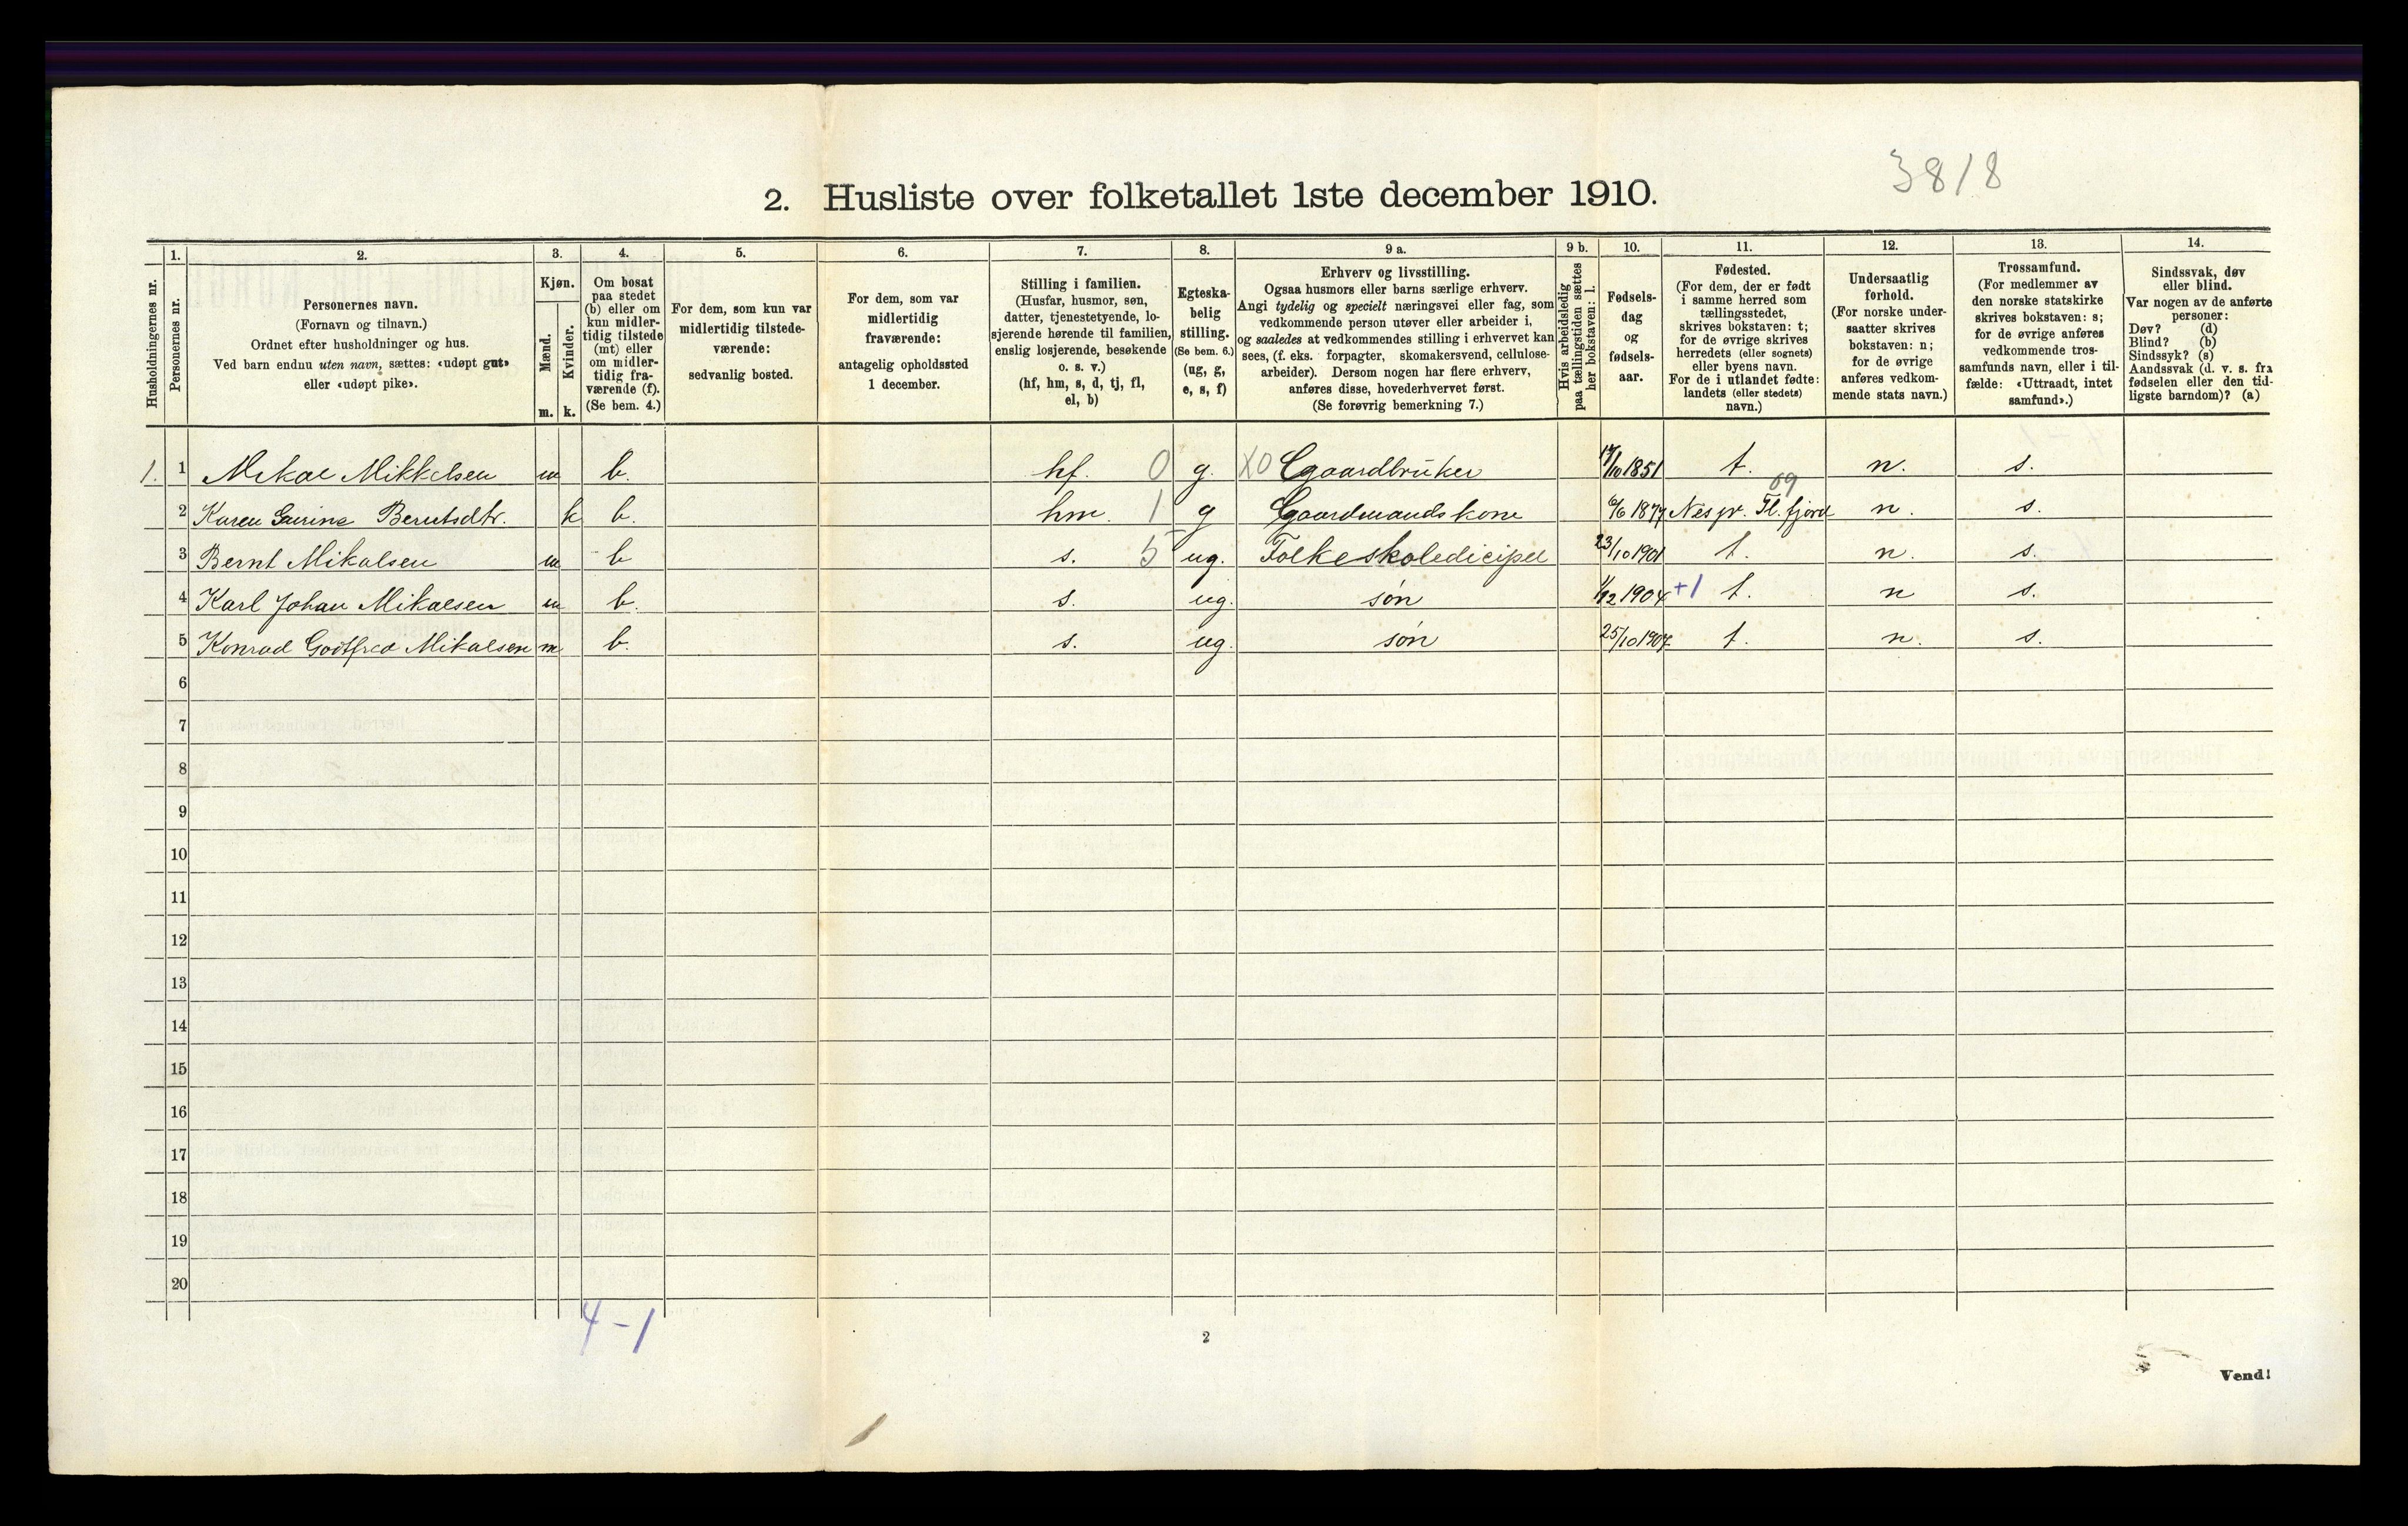 3818
2. Husliste over folketallet 1ste december 1910.
Husholdningernes nr.
1.
Personernes nr.
2.
Personernes navn.
(Fornavn og tilnavn.)
Ordnet efter husholdninger og hus.
Ved barn endnu uten navn, sættes: «udøpt gut»
eller «udøpt pike».
3.
Kjøn.
Mænd.
Kvinder.
m. k.
4.
Om bosat
paa stedet
(b) eller om
kun midler-
tidig tilstede
(mt) eller
om midler-
tidig fra-
værende (f).
(Se bem. 4.)
5.
For dem, som kun var
midlertidig tilstede-
værende:
sedvanlig bosted.
6.
For dem, som var
midlertidig
fraværende:
antagelig opholdssted
1 december.
7.
Stilling i familien.
(Husfar, husmor, søn,
datter, tjenestetyende, lo-
sjerende hørende til familien,
enslig losjerende, besøkende
o. s. v.)
(hf, hm, s, d, tj, fl,
el, b)
8.
Egteska-
belig
stilling.
(Se bem. 6.)
(ug, g,
e, s, f)
9 a.
Erhverv og livsstilling.
Ogsaa husmors eller barns særlige erhverv.
Angi tydelig og specielt næringsvei eller fag, som
vedkommende person utøver eller arbeider i,
og saaledes at vedkommendes stilling i erhvervet kan
sees, (f. eks. forpagter, skomakersvend, cellulose-
arbeider). Dersom nogen har flere erhverv,
anføres disse, hovederhvervet først.
(Se forøvrig bemerkning 7.)
9 b.
Hvis arbeidsledig
paa tællingstiden sættes
her bokstaven: l.
10.
Fødsels-
dag
og
fødsels-
aar.
11.
Fødested.
(For dem, der er født
i samme herred som
tællingsstedet,
skrives bokstaven: t;
for de øvrige skrives
herredets (eller sognets)
eller byens navn.
For de i utlandet fødte:
landets (eller stedets)
navn.)
12.
Undersaatlig
forhold.
(For norske under-
saatter skrives
bokstaven: n;
for de øvrige
anføres vedkom-
mende stats navn.)
13.
Trossamfund.
(For medlemmer av
den norske statskirke
skrives bokstaven: s;
for de øvrige anføres
vedkommende tros-
samfunds navn, eller i til-
fælde: «Uttraadt, intet
samfund».)
14.
Sindssvak, døv
eller blind.
Var nogen av de anførte
personer:
Døv? (d)
Blind? (b)
Sindssyk? (s)
Aandssvak (d. v. s. fra
fødselen eller den tid-
ligste barndom)? (a)
1. 1 Mikal Mikkelsen m b. hf. 0 g. X0 Gaardbruker /10 1851 t. n. s.
09
2 Karen Berntsdtr. k b. hm. 1 g Gaardmandskone 6/6 1877 Nes pr. Fl. fjord n. s.
3 Bernt Mikalsen m b s. 5 ug. Folkeskoledicipel 23/10 1901 t. n. s.
4 Karl Johan Mikalsen m b. s. ug. søn 1/12 1904 +1 t. n s.
5 Konrad Godtfred Mikalsen m b. s. ug. søn 25/10 1907 t. n. s.
6
7
8
9
10
11
12
13
14
15
16
17
18
19
20
4-1
2
Vend!